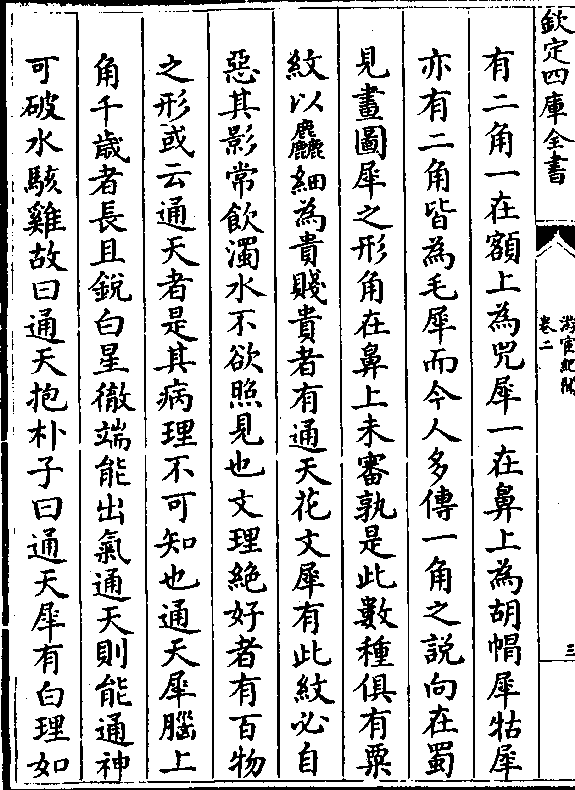 欽定四庫全書
游宦紀聞
卷二
三
有二角一在額上為兕犀一在鼻上為胡帽犀牯犀
亦有二角皆為毛犀而今人多傳一角之說向在蜀
見畫圖犀之形角在鼻上未審孰是此數種俱有粟
紋以麤細為貴賤貴者有通天花文犀有此紋必自
惡其影常飲濁水不欲照見也文理絕好者有百物
之形或云通天者是其病理不可知也通天犀腦上
角千歲者長且銳白星徹端能出氣通天則能通神
可破水駭雞故曰通天抱朴子曰通天犀有白理如